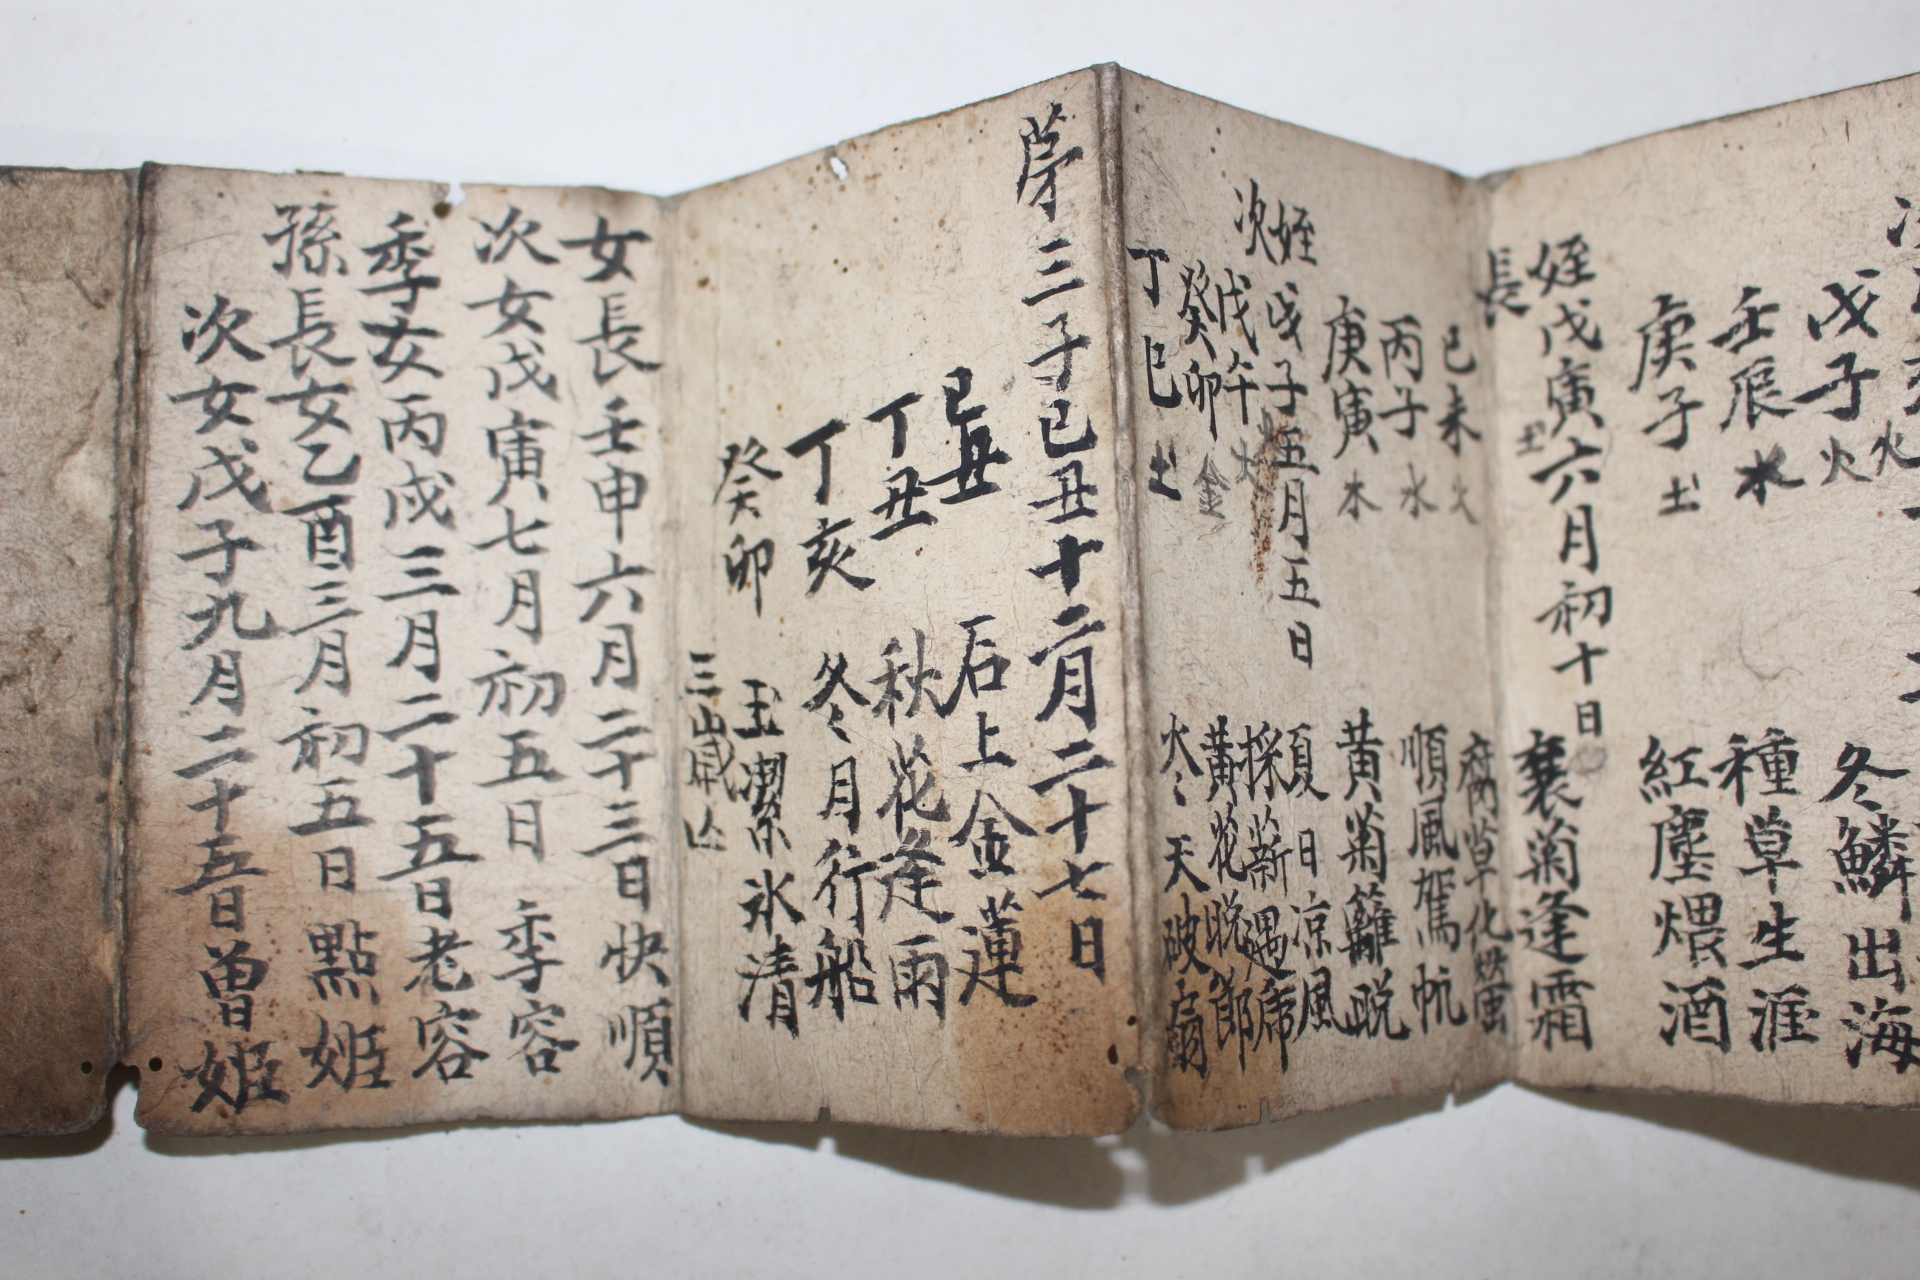 戊子 火 冬鱗出海
壬辰 水 種草生涯
庚子 土 紅塵煨酒
姪長戊寅六月初十日
戊寅 土 衰菊逢霜
己未 火 腐草化螢
丙子 水 順風駕帆
庚寅 木 黃菊籬脫
姪次戊子五月五日
夏日凉風
戊午 火 採薪遇席
癸卯 金 黃花晩節
丁巳 土 冬天破扇
第三子己丑十二月二十七日
己丑 石上金蓮
丁丑 秋花逢雨
丁亥 冬月行船
癸卯 玉潔氷清
女長壬申六月二十三日快順
次女戊寅七月初五日季容
季女丙戌三月二十五日老容
孫長女乙酉三月初五日點姬
次女戊子九月二十五日曾姬